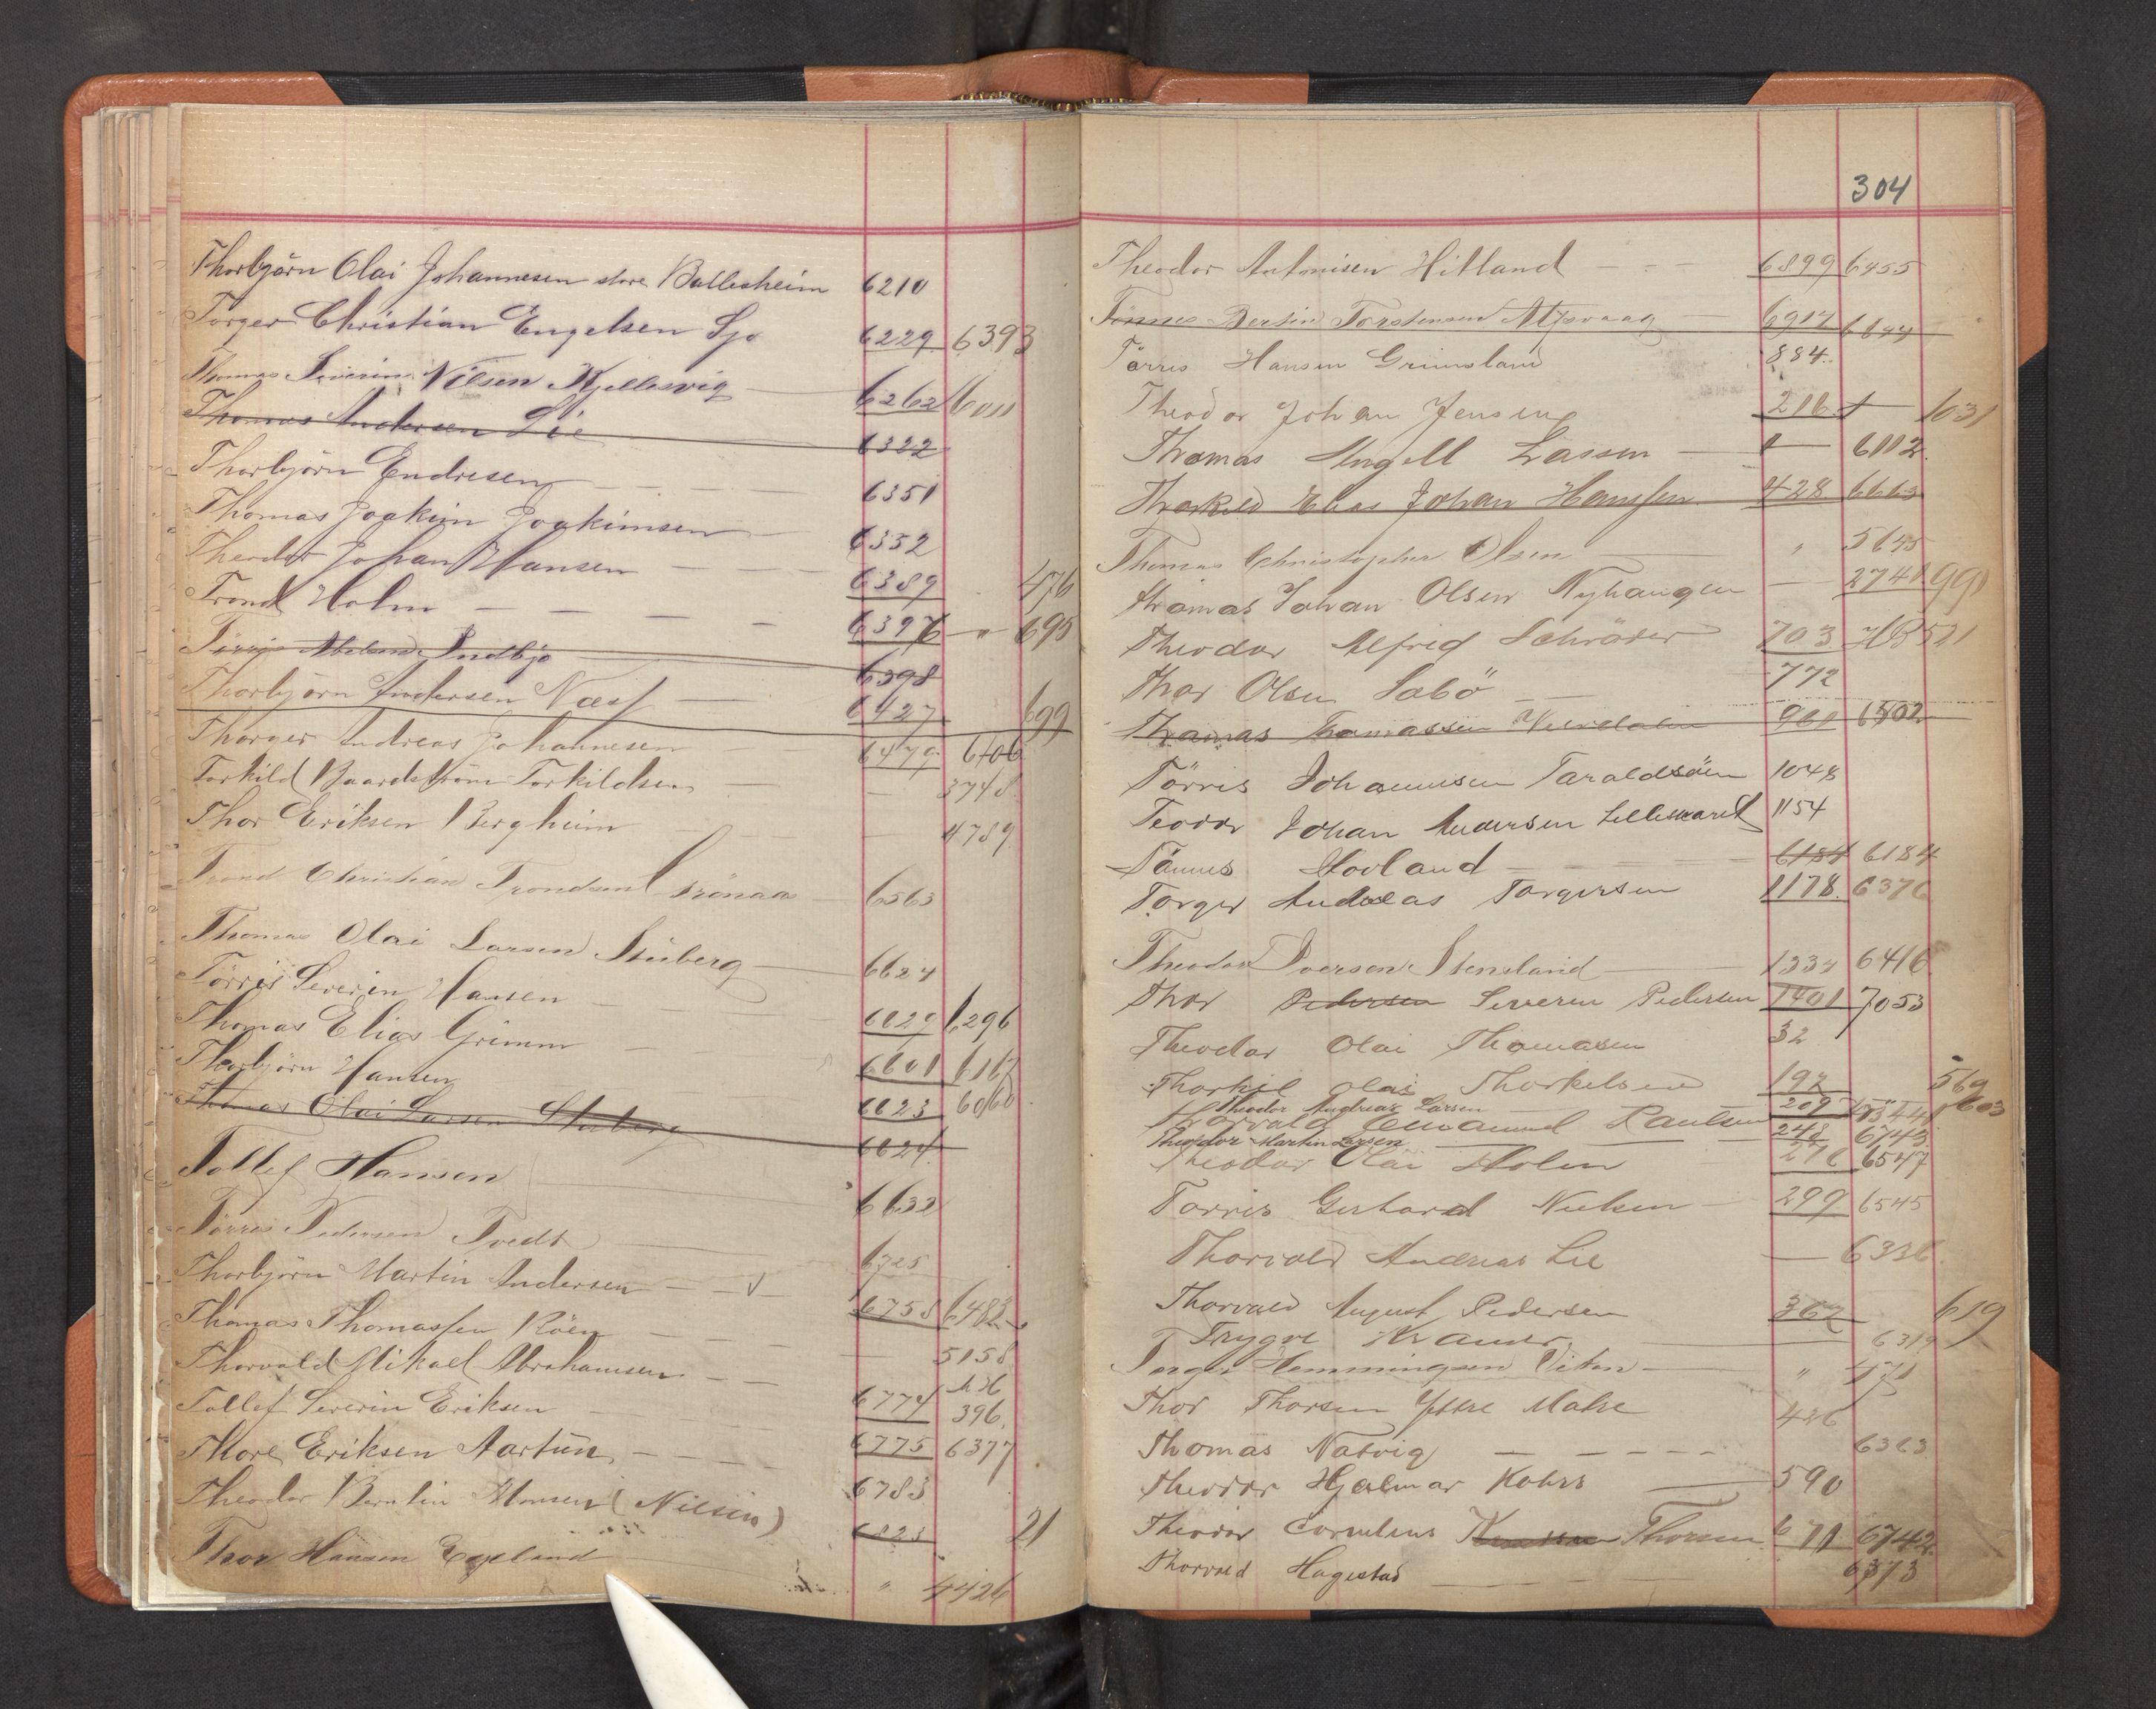 Thorbjörn Olai Johannesen store Ballesheim 6210
Torger Christian Engelsen Sjo 6229 6393
Thomas Severin Nilsen Kjellesvig 6262 6011
Thomas Andersen Lie 6322
Thorbjörn Endresen 6351
Thomas Joakim Joakimsen 6352
Theodor Johan Hansen 6389 476
Trond Holm 6397 " 695
6398
Thorbjörn Andersen Næss 6427 699
Thorger Andreas Johannesen 6479 6406
Torkild Torkildsen 3748
Thor Eriksen Bergheim 4789
Trond Christian Trondsen 6563
Thomas Olai Larsen Stuberg 6624
Törris Severin Hansen 6629 6296
Thomas Elias Grimm 6601 6167
Thorbjörn Hansen 6623 6060
Thomas Olai Larsen Stuberg 6624
Tollef Hansen 6632
Törres Pedersen Tvedt 6725
Thorbjörn Martin Andersen 6758 6482
Thomas Thomassen Röen 5158
Thorvald Mikael Abrahamsen 6774
Tollef Severin Eriksen 396
6775 6377
Thore Eriksen Aartun 6783
Theodor Berntin Monsen (Nilsen) 6823 21
Thor Hansen Egeland " 4426
304
Theodor Antonisen Hitland 6899 6455
Tönnes Bertin Torstensen 6917
Törres Hansen Grimsland 884
Theodor Johan Jensen 216 1031
Thomas Angell Lassen 6112
Thorkild Elias Johan Hansen 428 6663
Thomas Christopher Olsen " 5645
Thomas Johan Olsen Nyhaugen 2741 991
Theodor Alfred Schröder 703 521
Thor Olsen Sabö 772
Thomas Thomassen 961 6502
Törris Johannesen Taraldsöen 1048
Teodor Johan Andersen 1154
Tönnes Hovland 6184 6184
Torger Andreas Torgersen 1178 6376
Theodor Iversen Stensland 1334 6416
Thor Pedersen Severin Pedersen 1401 7053
Theodor Olai Thomasen 32
Thorkel Olai Thorkelsen 192 569
Theodor Andreas Larsen 209 603
Thorvald Emanuel Paulsen
Theodor Martin Larsen 248 6743
Theodor Olai Holm 276 6547
Torris Gerhard Nielsen 299 6545
Thorvald Andreas Lie 6336
Thorvald August Pedersen 367 619
Trygve 6319
Torger Hemmingsen " 471
Thor Thorsen Ytre Matre 426
Thomas Natvig 6363
Theodor Hjalmar Kohrs 590
Theodor Cornelius Thorsen 671 6742
Thorvald Hagestad 6373